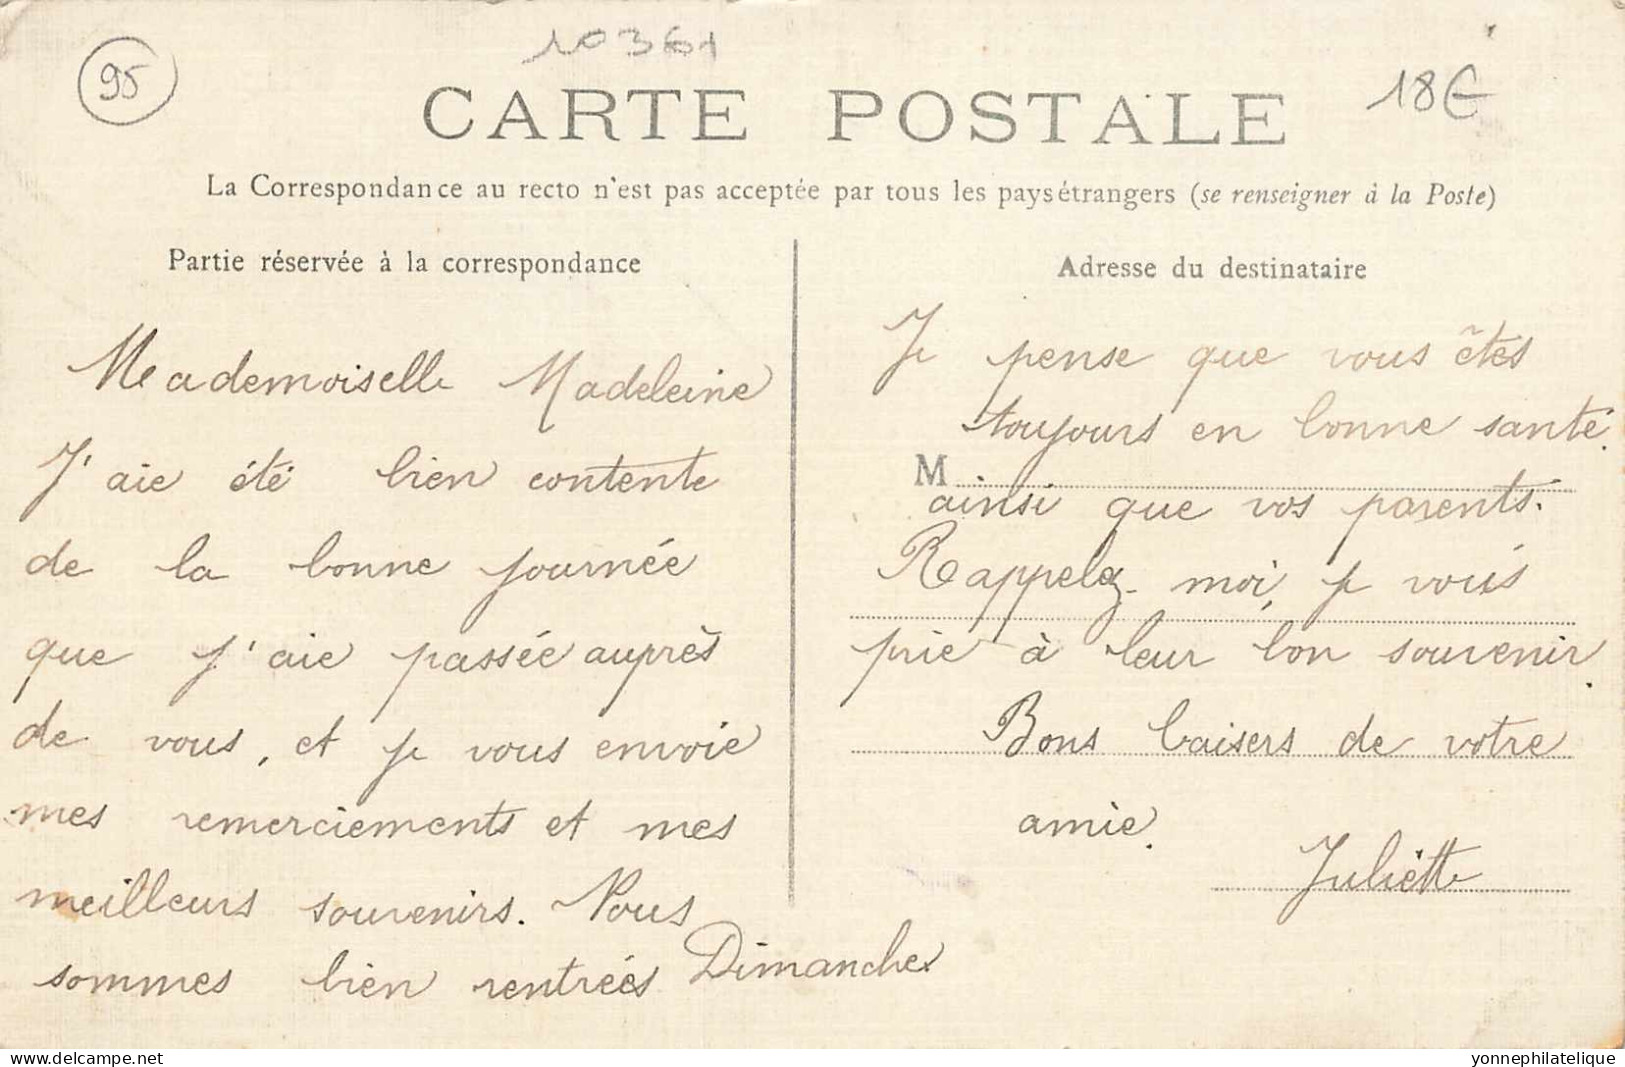 95
10361
18€
CARTE POSTALE
La Correspondance au recto n'est pas acceptée par tous les pays étrangers (se renseigner à la Poste)
Partie réservée à la correspondance
Mademoiselle Madeleine
J'aie été bien contente
de la bonne journée
que j'aie passée auprès
de vous, et je vous envoie
mes remerciements et mes
meilleurs souvenirs. Nous
sommes bien rentrées Dimanche.
Adresse du destinataire
Je pense que vous êtes
toujours en bonne santé.
M
ainsi que vos parents.
Rappelez-moi, je vous
prie à leur bon souvenir.
Bons baisers de votre
amie.
Juliette
www.delcampe.net
yonnephilatelique